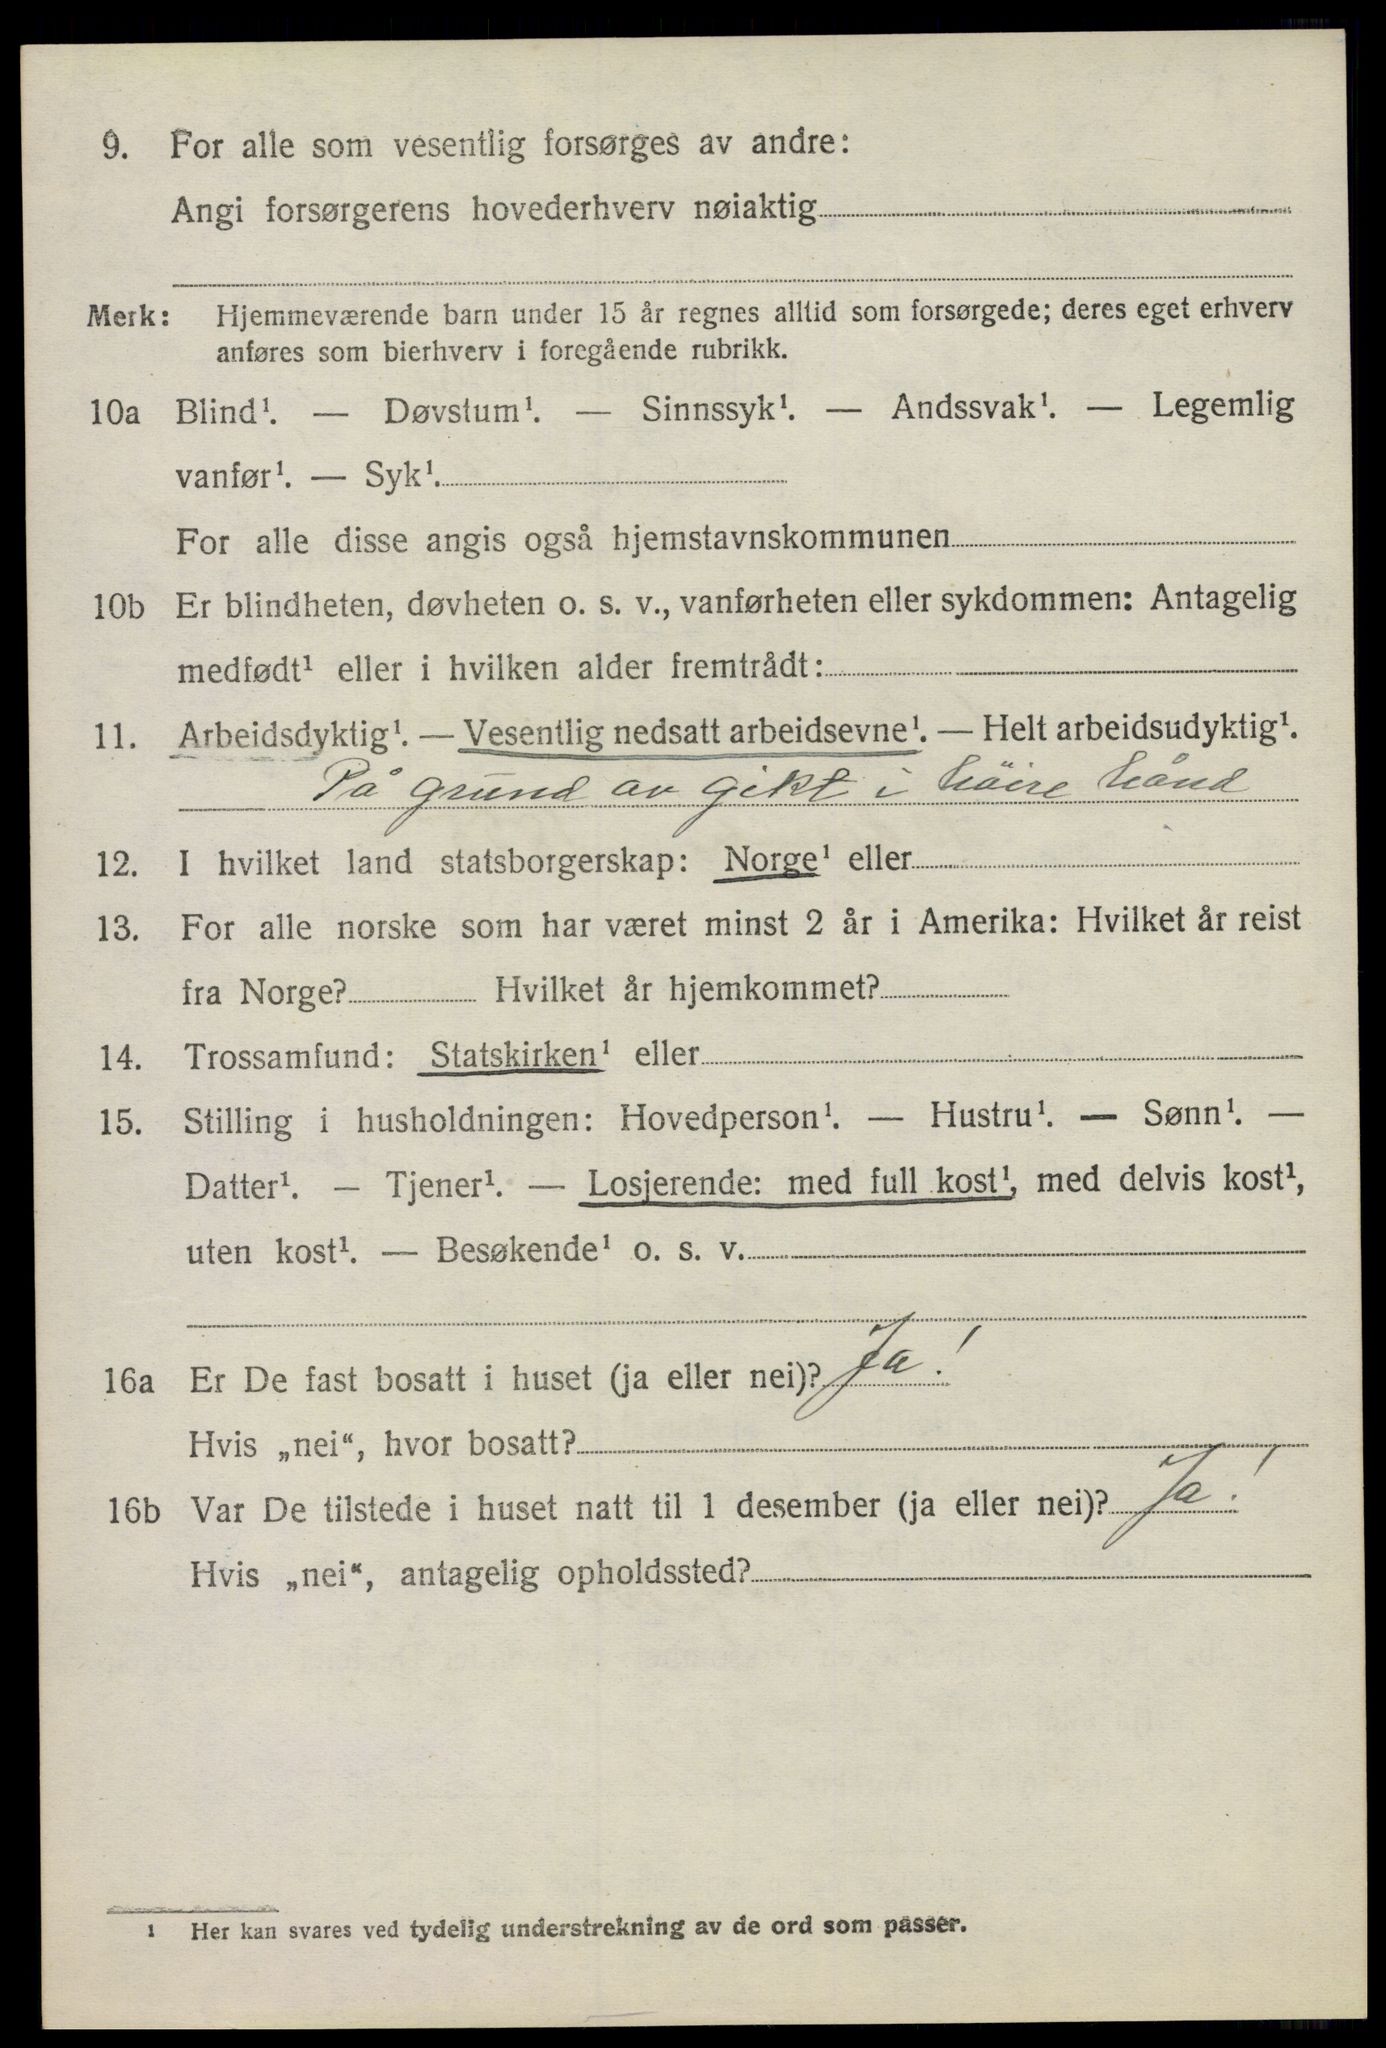 9. For alle som vesentlig forsørges av andre:
Angi forsørgerens hovederhverv nøiaktig
Merk: Hjemmeværende barn under 15 år regnes alltid som forsørgede; deres eget erhverv
anføres som bierhverv i foregående rubrikk.
10a Blind¹. — Døvstum¹. — Sinnssyk¹. — Andssvak¹. — Legemlig
vanfør¹. — Syk¹.
For alle disse angis også hjemstavnskommunen
10b Er blindheten, døvheten o. s. v., vanførheten eller sykdommen: Antagelig
medfødt¹ eller i hvilken alder fremtrådt:
11. Arbeidsdyktig¹. — Vesentlig nedsatt arbeidsevne¹. — Helt arbeidsudyktig¹.
På grund av gikt i höire hånd
12. I hvilket land statsborgerskap: Norge¹ eller
13. For alle norske som har været minst 2 år i Amerika: Hvilket år reist
fra Norge? Hvilket år hjemkommet?
14. Trossamfund: Statskirken¹ eller
15. Stilling i husholdningen: Hovedperson¹. — Hustru¹. — Sønn¹. —
Datter¹. — Tjener¹. — Losjerende: med full kost¹, med delvis kost¹,
uten kost¹. — Besøkende¹ o. s. v.
16a Er De fast bosatt i huset (ja eller nei)? Ja!
Hvis „nei“, hvor bosatt?
16b Var De tilstede i huset natt til 1 desember (ja eller nei)? Ja!
Hvis „nei“, antagelig opholdssted?
1 Her kan svares ved tydelig understrekning av de ord som passer.